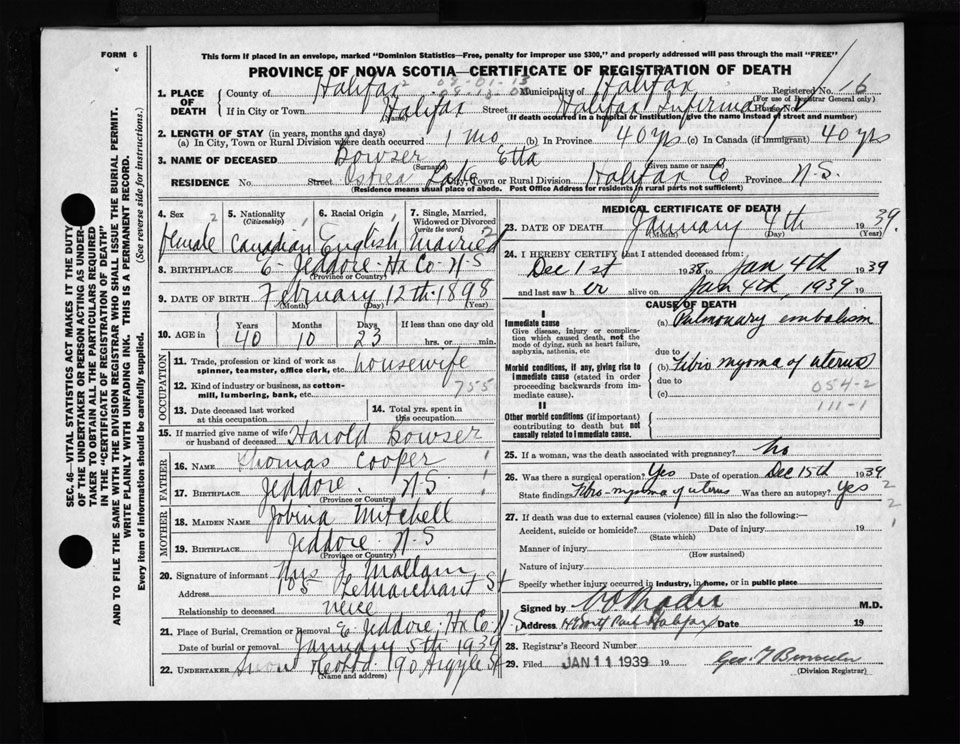 FORM 6
This form if placed in an envelope, marked "Dominion Statistics—Free, penalty for improper use $300," and properly addressed will pass through the mail "FREE"
PROVINCE OF NOVA SCOTIA—CERTIFICATE OF REGISTRATION OF DEATH
SEC. 46—VITAL STATISTICS ACT MAKES IT THE DUTY
OF THE UNDERTAKER OR PERSON ACTING AS UNDER-
TAKER TO OBTAIN ALL THE PARTICULARS REQUIRED
IN THE "CERTIFICATE OF REGISTRATION OF DEATH"
AND TO FILE THE SAME WITH THE DIVISION REGISTRAR WHO SHALL ISSUE THE BURIAL PERMIT.
WRITE PLAINLY WITH UNFADING INK. THIS IS A PERMANENT RECORD.
Every item of information should be carefully supplied. (See reverse side for instructions.)
1. PLACE OF DEATH
County of Halifax Municipality of Halifax Registered No. 16
(For use of Registrar General only)
If in City or Town Halifax Street Halifax Infirmary House No.
(Name) (If death occurred in a hospital or institution, give the name instead of street and number)
2. LENGTH OF STAY (in years, months and days)
(a) In City, Town or Rural Division where death occurred 1 mo (b) In Province 40 yrs (c) In Canada (if immigrant) 40 yrs
3. NAME OF DECEASED Bowser Etta
(Surname) (Given name or names)
RESIDENCE No. Street Ostrea Lake City, Town or Rural Division Halifax Co Province N.S.
(Residence means usual place of abode. Post Office Address for residents in rural parts not sufficient)
4. Sex 2 5. Nationality (Citizenship) 6. Racial Origin 7. Single, Married, Widowed or Divorced (write the word) 2
female Canadian English Married
8. BIRTHPLACE E- Jeddore Hx Co. N.S
(Province or Country)
9. DATE OF BIRTH February 12th 1898
(Month) (Day) (Year)
10. AGE in Years Months Days If less than one day old
40 10 23 hrs. or min.
OCCUPATION
11. Trade, profession or kind of work as
spinner, teamster, office clerk, etc. housewife
12. Kind of industry or business, as cotton-
mill, lumbering, bank, etc. 755
13. Date deceased last worked
at this occupation
14. Total yrs. spent in
this occupation
15. If married give name of wife
or husband of deceased Harold Bowser
FATHER
16. NAME Thomas Cooper
17. BIRTHPLACE Jeddore N.S.
(Province or Country)
MOTHER
18. MAIDEN NAME Jobina Mitchell
19. BIRTHPLACE Jeddore N.S
(Province or Country)
20. Signature of informant Mrs J Mallam
Address 105 LeMarchant St
Relationship to deceased neice
21. Place of Burial, Cremation or Removal E- Jeddore Hx Co N.S
Date of burial or removal January 5th 1939
22. UNDERTAKER 90 Argyle St
(Name and address)
MEDICAL CERTIFICATE OF DEATH
23. DATE OF DEATH January 4th 1939.
(Month) (Day) (Year)
24. I HEREBY CERTIFY that I attended deceased from
Dec 1st 1938 to Jan 4th 1939
and last saw her alive on Jan 4th, 1939 19
CAUSE OF DEATH
I
Immediate cause
Give disease, injury or complica-
tion which caused death, not the
mode of dying, such as heart failure,
asphyxia, asthenia, etc
(a) Pulmonary embolism
due to
Morbid conditions, if any, giving rise to
immediate cause (stated in order
proceeding backwards from im-
mediate cause).
(b) Fibro myoma of uterus
due to
(c) 054-2
111-1
II
Other morbid conditions (if important)
contributing to death but not
causally related to immediate cause.
25. If a woman, was the death associated with pregnancy? no
26. Was there a surgical operation? Yes Date of operation Dec 15th 1939
State findings Fibro-myoma of uterus Was there an autopsy? Yes 2
2
1
27. If death was due to external causes (violence) fill in also the following:—
Accident, suicide or homicide? Date of injury 19
(State which)
Manner of injury
(How sustained)
Nature of injury
Specify whether injury occurred in industry, in home, or in public place
Signed by M.D.
Address Halifax Date 19
28. Registrar's Record Number
29. Filed JAN 11 1939 19
(Division Registrar)